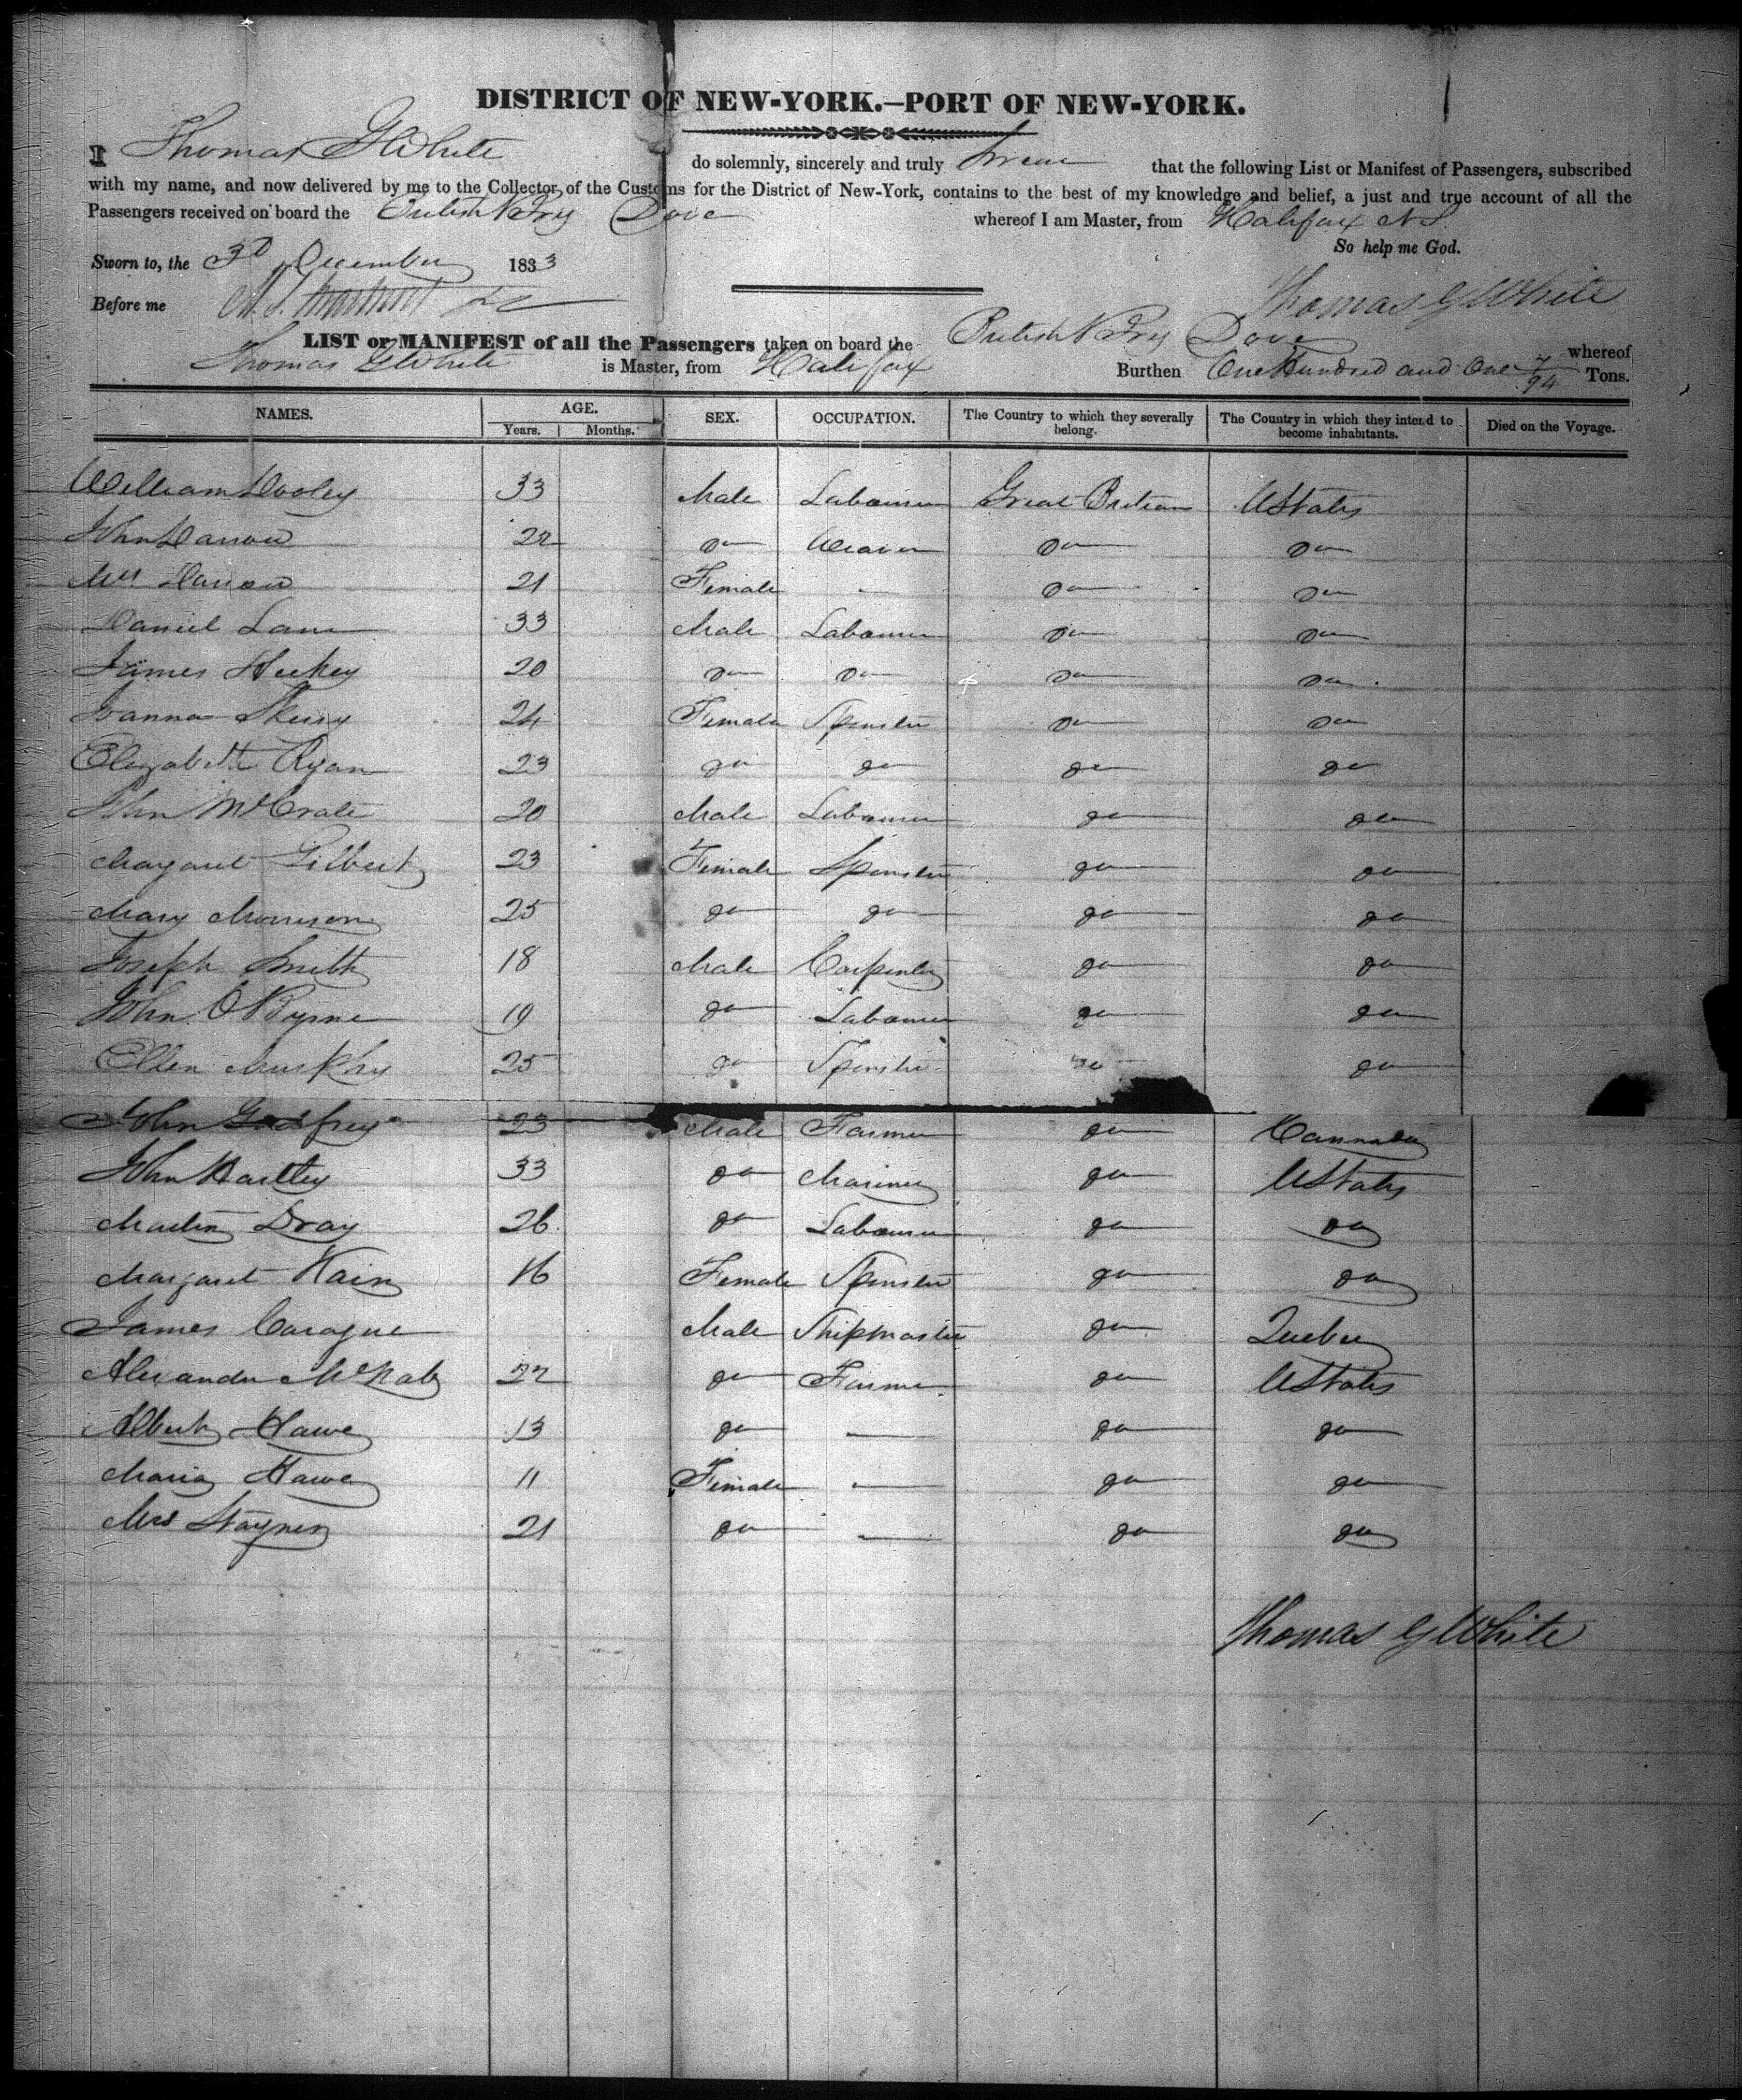 DISTRICT OF NEW-YORK.—PORT OF NEW-YORK.
I Thomas G White do solemnly, sincerely and truly Swear that the following List or Manifest of Passengers, subscribed
with my name, and now delivered by me to the Collector of the Customs for the District of New-York, contains to the best of my knowledge and belief, a just and true account of all the
Passengers received on board the British Brig Dove whereof I am Master, from Halifax N S.
So help me God.
Sworn to, the 3D December 1833
Thomas G White
Before me
LIST or MANIFEST of all the Passengers taken on board the British Brig Dove whereof
Thomas G White is Master, from Halifax Burthen One Hundred and One 7/94 Tons.
NAMES. AGE. SEX. OCCUPATION. The Country to which they severally belong. The Country in which they intend to become inhabitants. Died on the Voyage.
Years. Months.
William Dooley 33 Male Labourer Great Britian UStates
John Darrow 22 Do Weaver Do Do
Mrs Darrow 21 Female - Do Do
Daniel Lane 33 Male Labourer Do Do
James Hickey 20 Do Do Do Do
Joanna Skerry 24 Female Spinster Do Do
Elizabeth Ryan 23 do do do do
John McCrate 20 Male Labourer do do
Margaret Gilbert 23 Female Spinster do do
Mary Morrison 25 do do do do
Joseph Smith 18 Male Carpenter do do
John O'Byrne 19 do Labourer do do
Ellen Murphy 25 do Spinster do do
John Godfrey 23 Male Farmer do Cannada
John Hartley 33 do Mariner do UStates
Martin Dray 26 do Labourer do do
Margaret Kain 16 Female Spinster do do
James Caragne Male Shipmaster do Quebec
Alexander McNab 22 do Farmer do UStates
Albert Hawe 13 do — do do
Maria Hawe 11 Female — do do
Mrs Stayner 21 do — do do
Thomas G White